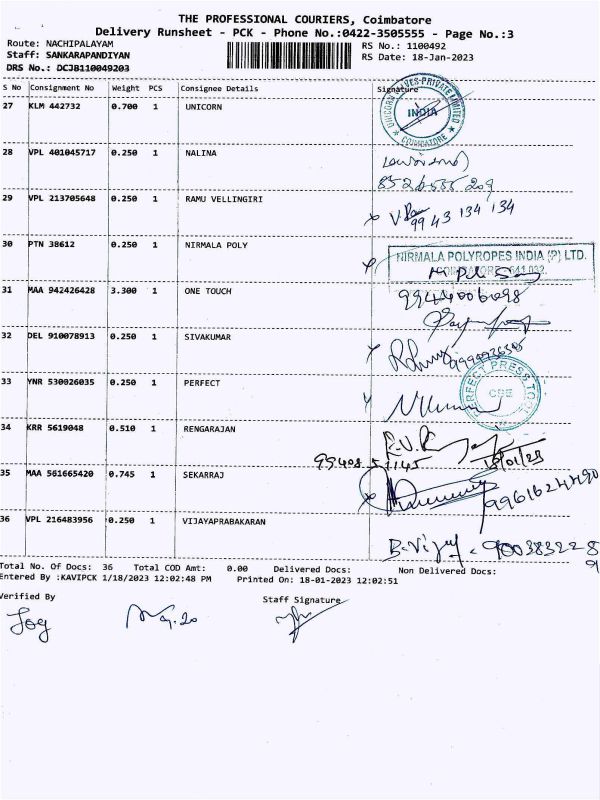 THE PROFESSIONAL COURIERS, Coimbatore
Delivery Runsheet - PCK - Phone No.:0422-3505555 - Page No.:3
Route: NACHIPALAYAM
Staff: SANKARAPANDIYAN
DRS No.: DCJB110049203
RS No.: 1100492
RS Date: 18-Jan-2023
S No Consignment No Weight PCS Consignee Details Signature
27 KLM 442732 0.700 1 UNICORN
UNICORN VES PRIVATE LIMITED
INDIA
COIMBATORE
28 VPL 401045717 0.250 1 NALINA
29 VPL 213705648 0.250 1 RAMU VELLINGIRI
9943 134 134
30 PTN 38612 0.250 1 NIRMALA POLY
NIRMALA POLYROPES INDIA (P) LTD.
COIMBATORE - 641 032.
31 MAA 942426428 3.300 1 ONE TOUCH
32 DEL 910078913 0.250 1 SIVAKUMAR
33 YNR 530026035 0.250 1 PERFECT
PERFECT PRESS TOOL
CBE
34 KRR 5619048 0.510 1 RENGARAJAN
99408 51145 18/01/23
35 MAA 561665420 0.745 1 SEKARRAJ
36 VPL 216483956 0.250 1 VIJAYAPRABAKARAN
B. Vijay
Total No. Of Docs: 36 Total COD Amt: 0.00 Delivered Docs: Non Delivered Docs:
Entered By :KAVIPCK 1/18/2023 12:02:48 PM Printed On: 18-01-2023 12:02:51
Verified By
Staff Signature